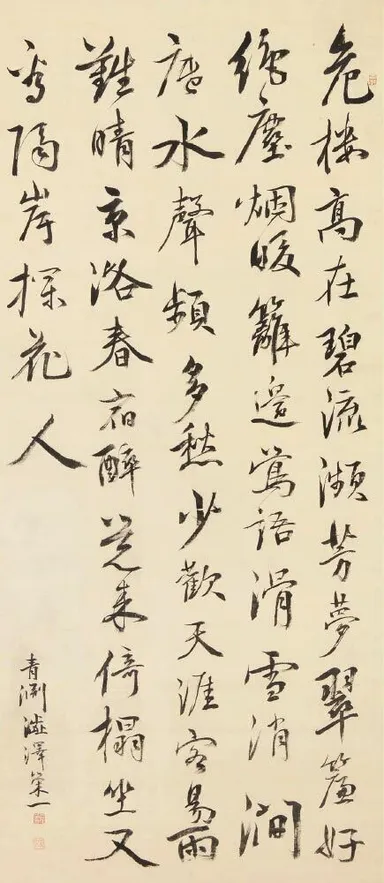 危楼高在碧流瀕芳夢翠簾好
絶塵烟暖籬邊鶯語滑雪消澗
底水聲頻多愁少歡天涯客易雨
難晴京洛春宿醉覚来倚榻坐又
看隔岸探花人
青渕澁澤榮一